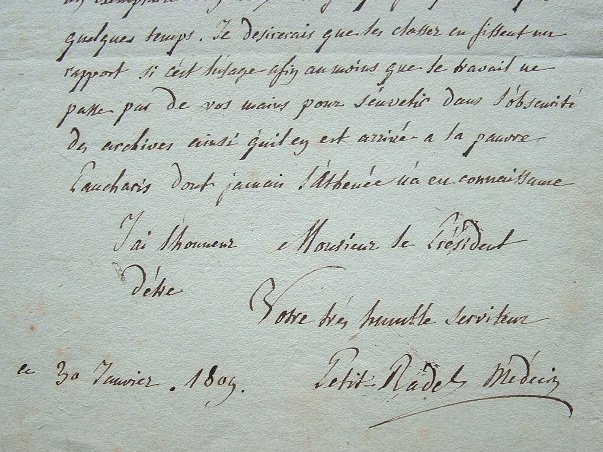 un exemplaire
quelques temps. Je desirerais que les classes en fissent un
rapport si c'est l'usage afin au moins que le travail ne
passe pas de vos mains pour s'envelir dans l'obscurité
des archives ainsi qu'il en est arrivé a la pauvre
Eucharis dont jamais l'Athenée n'a eu connaissance
J'ai l'honneur Monsieur le Président
d'être
Votre très humble serviteur
ce 30 Janvier . 1809.
Petit-Radel Médecin